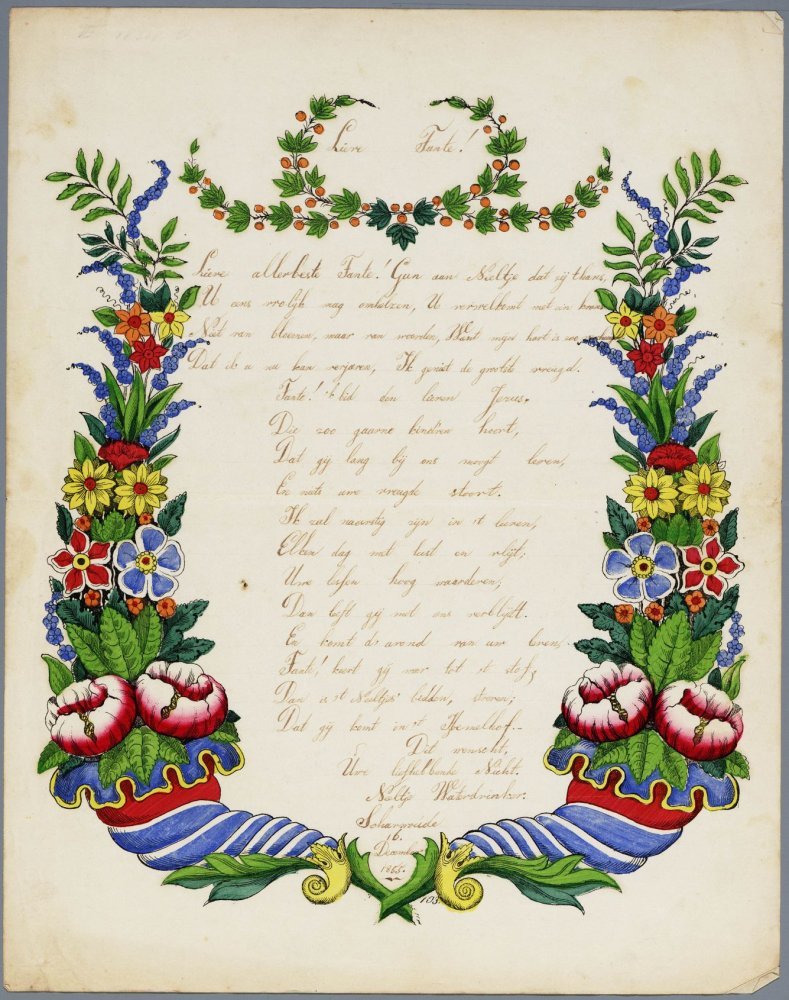 Lieve Tante!
Lieve allerbeste Tante! Gun aan Neeltje dat zij thans,
U eens vrolijk mag omhelzen, U verwelkomt met een krans
Niet van bloemen, maar van woorden, Want mijn hart is zoo
Dat ik u nu kan verjaren, Ik geniet de grootste vreugd.
Tante! 'k bid den lieven Jezus,
Die zoo gaarne kindren hoort,
Dat gij lang bij ons moogt leven,
En niets uwe vreugde stoort.
Ik zal naarstig zijn in 't leeren,
Elken dag met lust en vlijt;
Uwe lessen hoog waarderen,
Dan leeft gij met ons verblijdt.
En komt de avond van uw leven,
Tante! keert gij weer tot 't stof,
Dan is 't Neeltjes bidden, streven;
Dat gij komt in 't Hemelhof.-
Dit wenscht,
Uwe liefhebbende Nicht.
Neeltje Waterdrinker.
Scharwoude
16
December
1865.
103